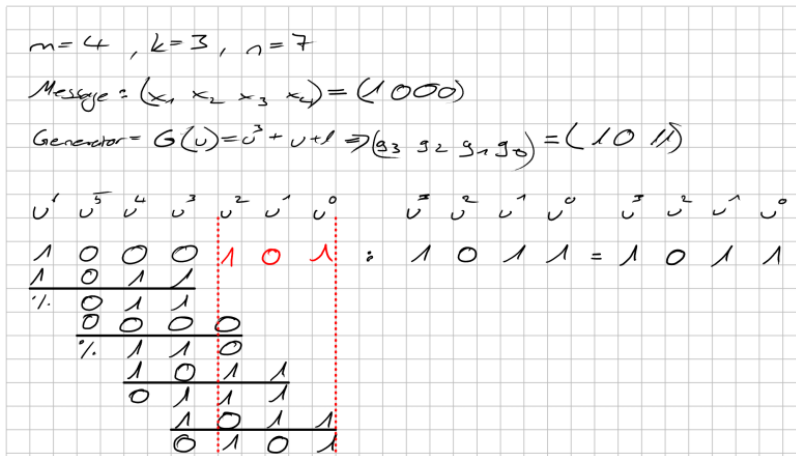 m=4 , k=3 , n=7
Message = (x₁ x₂ x₃ x₄) = (1000)
Generator = G(u) = u³ + u + 1 ⇒ (g₃ g₂ g₁ g₀) = (10 11)
u⁶ u⁵ u⁴ u³ u² u¹ u⁰ u³ u² u¹ u⁰ u³ u² u¹ u⁰
1 0 0 0 1 0 1 : 1 0 1 1 = 1 0 1 1
1 0 1 1
% 0 1 1
0 0 0 0
% 1 1 0
1 0 1 1
0 1 1 1
1 0 1 1
0 1 0 1